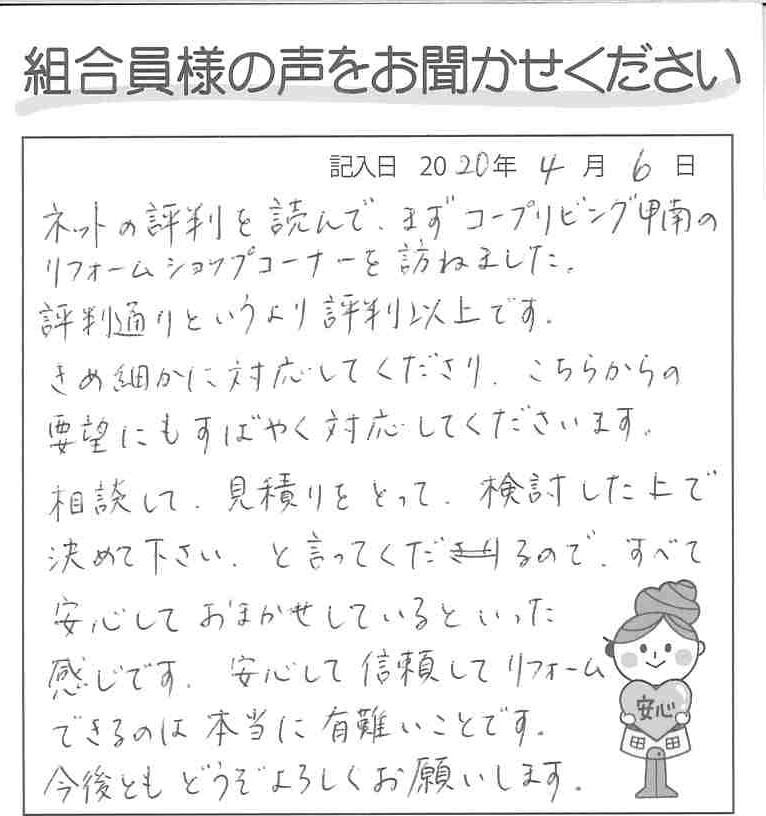 組合員様の声をお聞かせください
記入日 2020年 4月 6日
ネットの評判を読んで、まずコープリビング甲南の
リフォームショップコーナーを訪ねました。
評判通りというより評判以上です。
きめ細かに対応してくださり、こちらからの
要望にもすばやく対応してくださいます。
相談して、見積りをとって、検討した上で
決めて下さい、と言ってくださるので、すべて
安心しておまかせしているといった
感じです。安心して信頼してリフォーム
できるのは本当に有難いことです。
今後ともどうぞよろしくお願いします。
安心